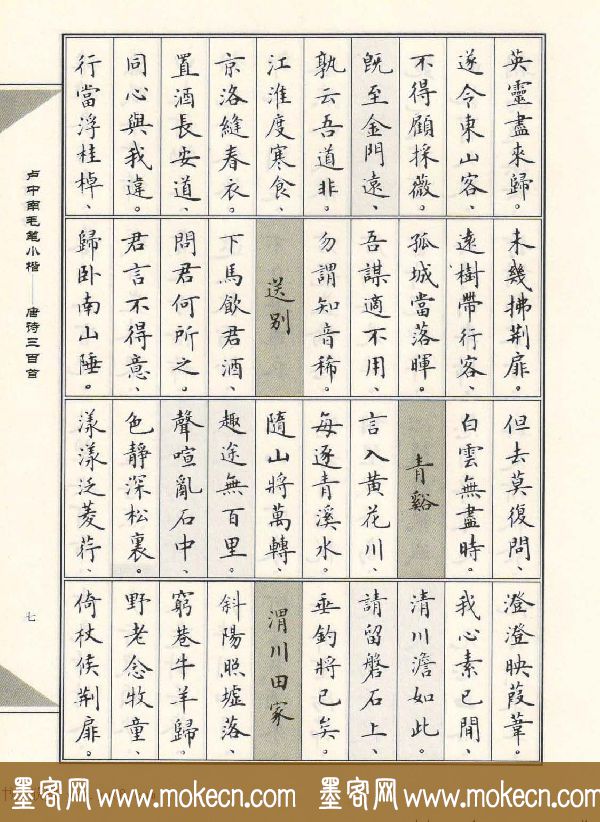 英靈盡來歸。
遂令東山客、
不得顧採薇。
既至金門遠、
孰云吾道非。
江淮度寒食、
京洛縫春衣。
置酒長安道、
同心與我違。
行當浮桂棹、
未幾拂荆扉。
遠樹帶行客、
孤城當落暉。
吾謀適不用、
勿謂知音稀。
送别
下馬飲君酒、
問君何所之。
君言不得意、
歸卧南山陲。
但去莫復問、
白雲無盡時。
青谿
言入黄花川、
每逐青溪水。
隨山將萬轉、
趣途無百里。
聲喧亂石中、
色靜深松裏。
漾漾泛菱荇、
澄澄映葭葦。
我心素已閒、
清川澹如此。
請留磐石上、
垂釣將已矣。
渭川田家
斜陽照墟落、
窮巷牛羊歸。
野老念牧童、
倚杖候荆扉。
卢中南毛笔小楷——唐诗三百首
七
墨客网 www.mokecn.com 墨客网 www.mokecn.com